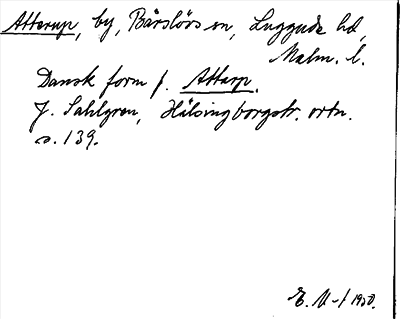 Atterup, by, Bårslövs sn, Luggude hd,
Malm. l.
Dansk form f. Attarp.
J. Sahlgren, Hälsingborgstr. ortn.
s. 139.
1950.